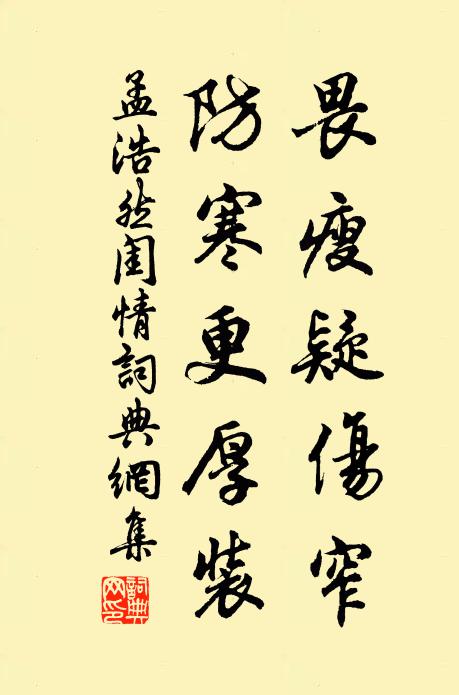 畏瘦疑傷窄
防寒更厚裝
孟浩然閨情詞典網集
詞典網印